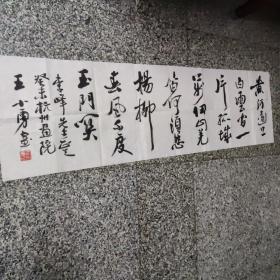 黄河遠上
白雲間一
片孤城
萬仞山羌
笛何須怨
楊柳
春風不度
玉門关
李峰先生
癸未杭州画院
王小勇